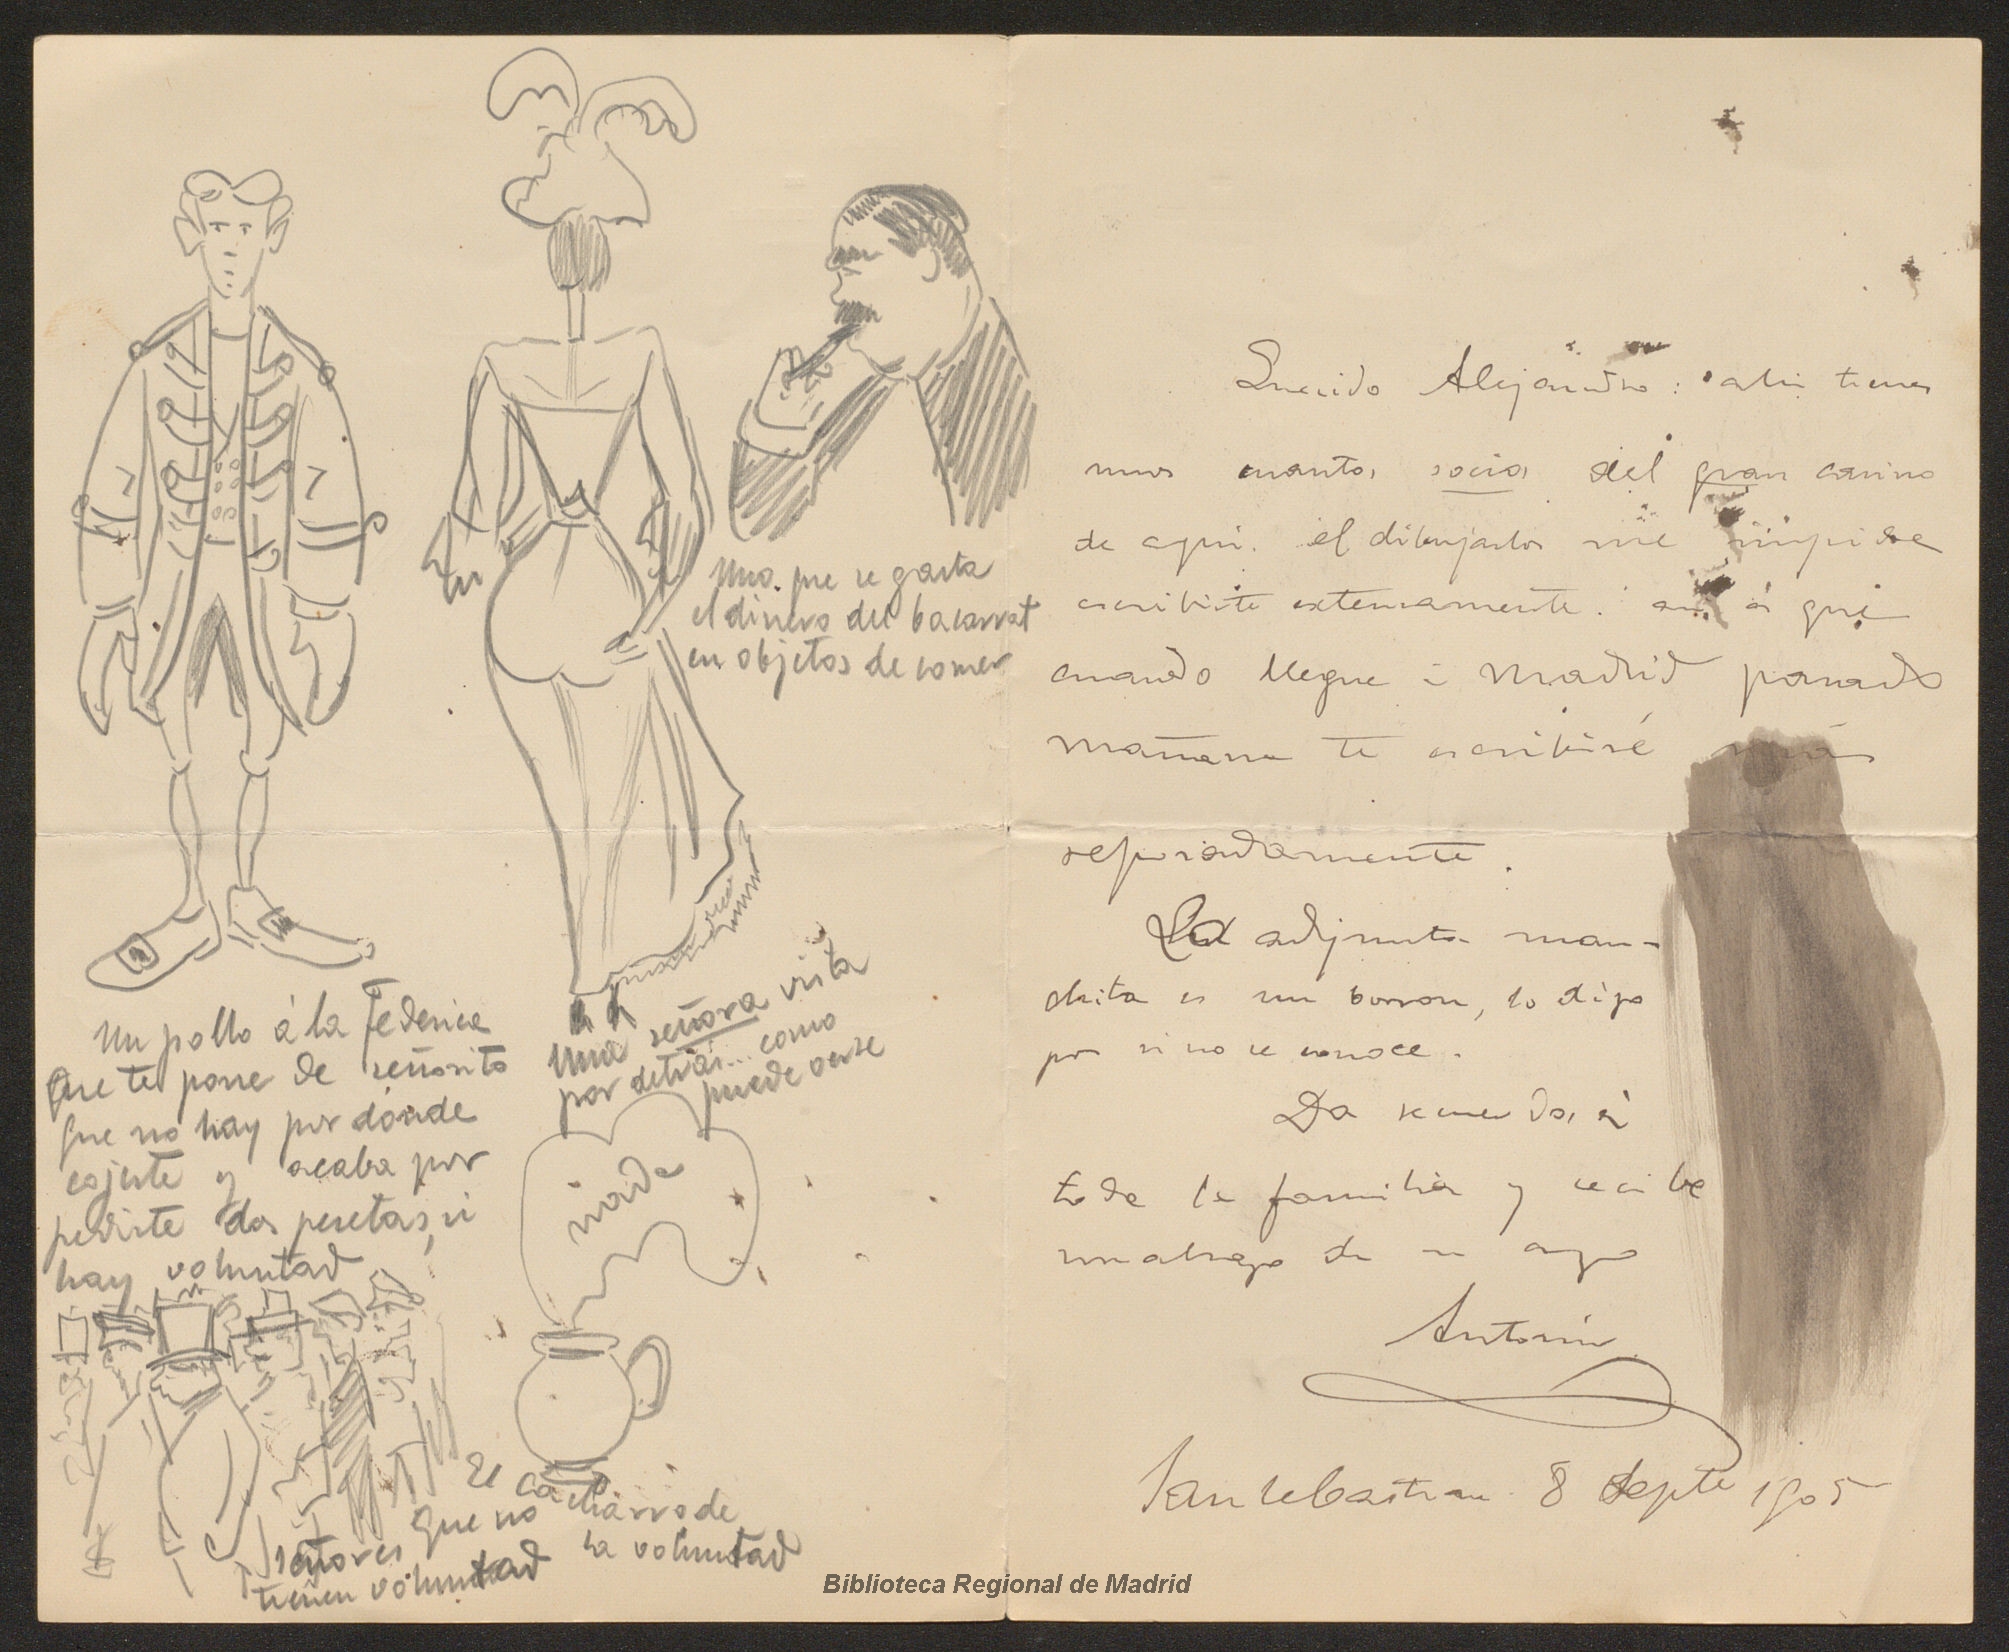 Uno que se gasta
el dinero del bacarrat
en objetos de comer
Un pollo á la Federica
Que te pone de señorito
que no hay por dónde
cojerte y acaba por
pedirte dos pesetas, si
hay voluntad
Una señora vista
por detrás... como
puede verse
nada
El cacharro de
la voluntad
señores que no
tienen voluntad
Querido Alejandro: ahi tienes
unos cuantos socios del gran casino
de aqui. el dibujarlos me impide
escribirte extensamente. asi es que
cuando llegue á Madrid pasado
mañana te escribiré más
reposadamente.
La adjunta man-
chita es un borron, lo digo
por si no se conoce.
Da recuerdos á
toda la familia y recibe
un abrazo de su
Antonio
San Sebastian 8 Septe 1905
Biblioteca Regional de Madrid